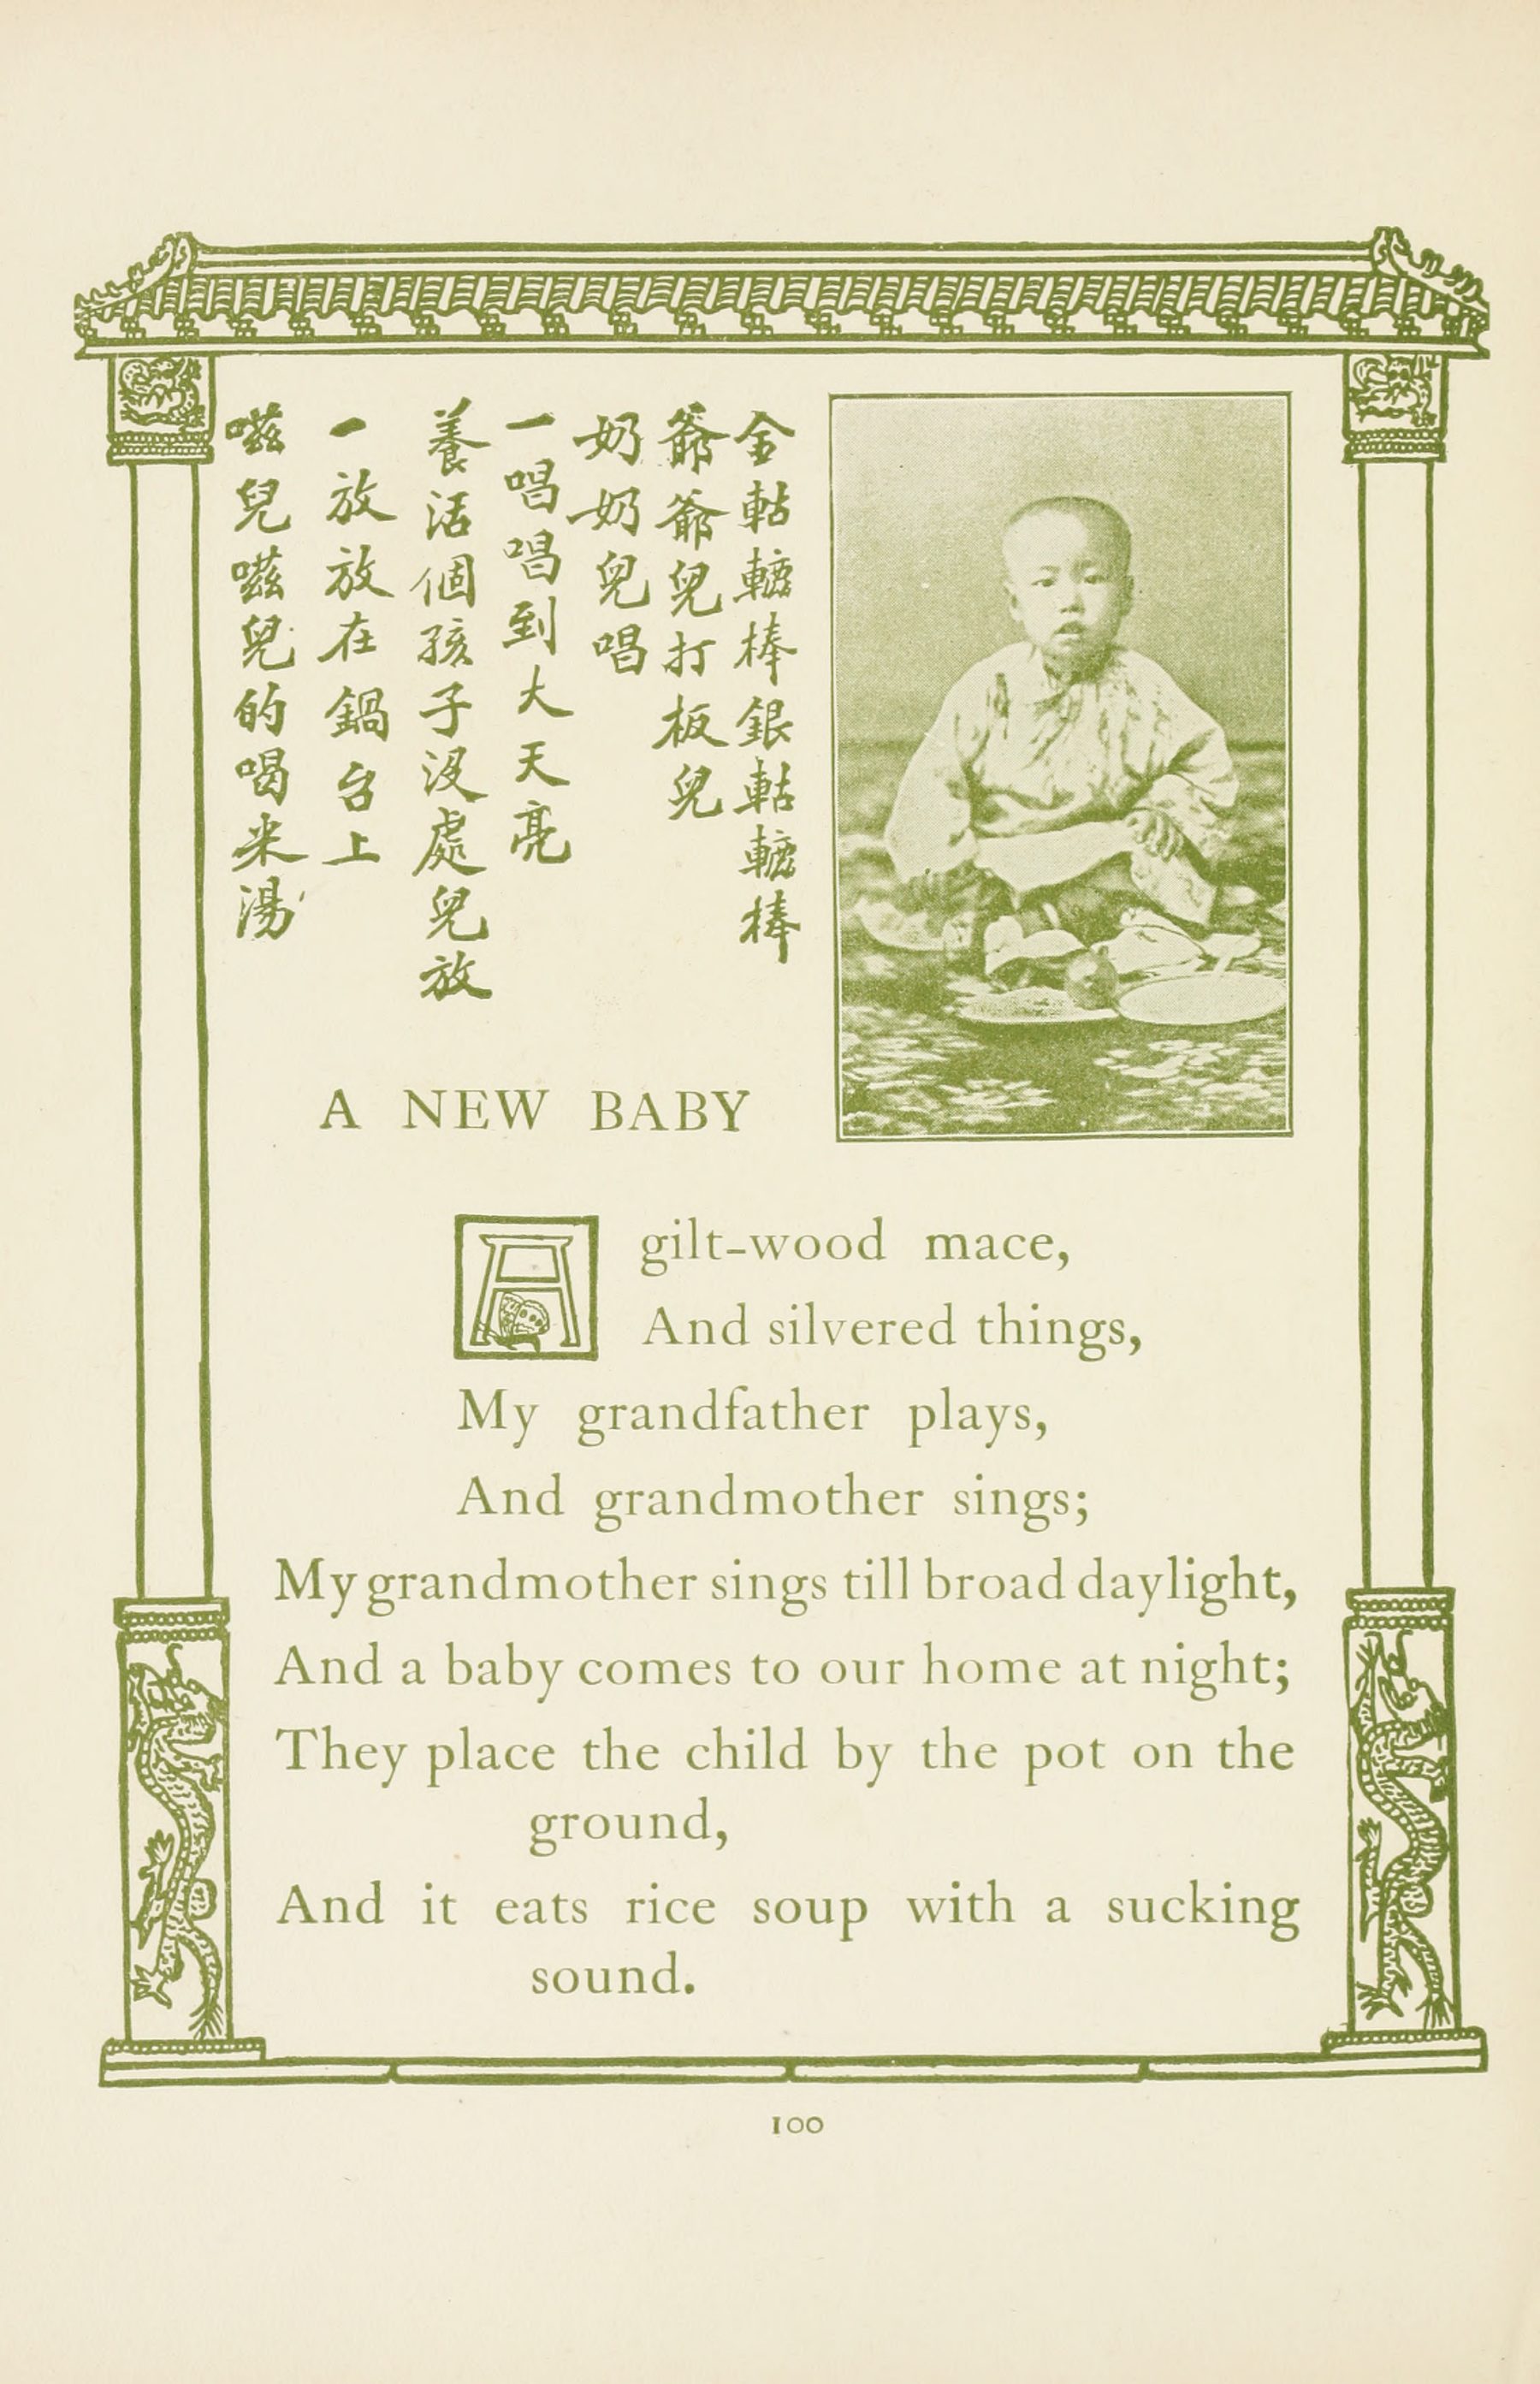 金軲轆棒銀軲轆棒
爺爺兒打板兒
奶奶兒唱
一唱唱到大天亮
養活個孩子没處兒放
一放放在鍋台上
嗞兒嗞兒的喝米湯
A NEW BABY
A gilt-wood mace,
And silvered things,
My grandfather plays,
And grandmother sings;
My grandmother sings till broad daylight,
And a baby comes to our home at night;
They place the child by the pot on the
ground,
And it eats rice soup with a sucking
sound.
100